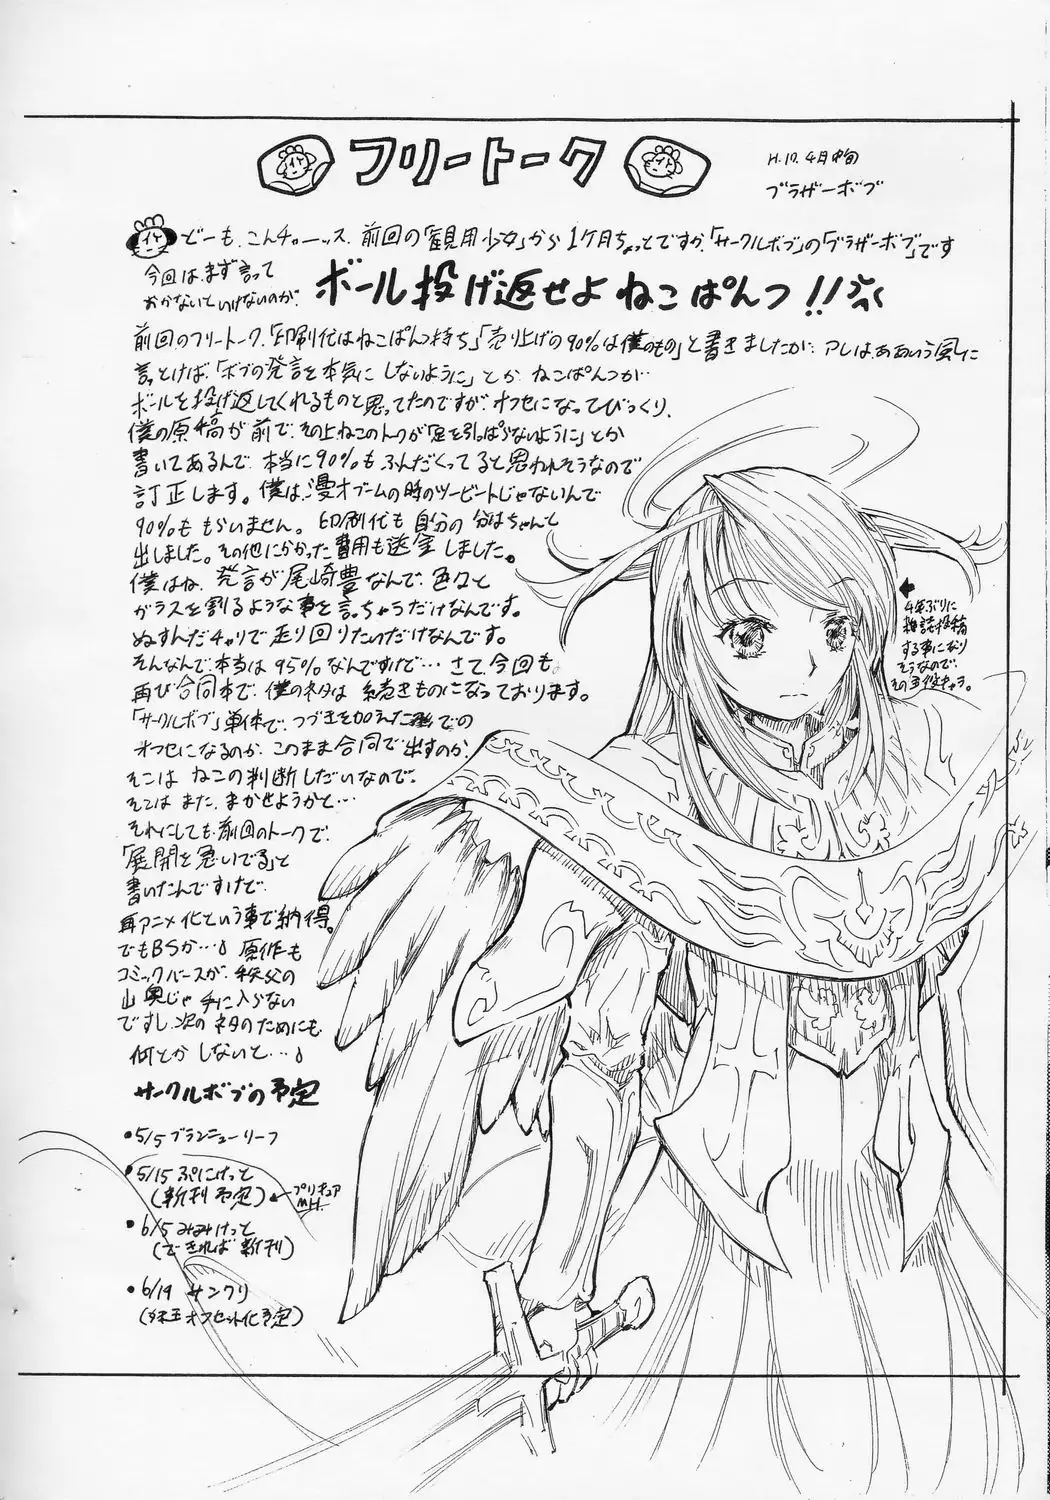 フリートーク
H.17.4月中旬
ブラザーボブ
どーも、こんチャーッス、前回の「観用少女」から1ケ月ちょっとですが、「サークルボブ」の「ブラザーボブ」です
今回は、まず言って
おかないといけないのが、
ボール投げ返せよ ねこぱんつ!!
前回のフリートーク、「印刷代はねこぱんつ持ち」「売り上げの90%は僕のもの」と書きましたが、アレはああいう風に
言っとけば、「ボブの発言を本気にしないように」とか ねこぱんつが…
ボールを投げ返してくれるものと思ってたのですが、オフセになってびっくり、
僕の原稿が前で、その上、ねこのトークが「足を引っぱらないように」とか
書いてあるんで、本当に90%もふんだくってると思われそうなので
訂正します。僕は、漫才ブームの時のツービートじゃないんで
90%ももらいません。印刷代も自分の分はちゃんと
出しました。その他にかかった費用も送金しました。
僕はね、発言が尾崎豊なんで、色々と
ガラスを割るような事を言っちゃうだけなんです。
ぬすんだチャリで走り回りたいだけなんです。
そんなんで、本当は95%なんですけど… さて、今回も、
再び合同本で、僕のネタは続きものになっております。
「サークルボブ」単体で、つづきを加えた での
オフセになるのか、このまま合同で出すのか、
そこは ねこの判断しだいなので、
そこは また、まかせようかと…
それにしても、前回のトークで、
「展開を急いでる」と
書いたんですけど、
再アニメ化という事で納得。
でもBSか…。原作も
コミックバースが、秩父の
山奥じゃ手に入らない
ですし、次のネタのためにも
何とかしないと…。
サークルボブの予定
•5/5 ブランニューリーフ
•5/15 ぷにけっと
(新刊予定)←プリキュア
MH
•6/5 みみけっと
(できれば新刊)
•6/19 サンクリ
(オフセット化予定)
4年ぶりに
雑誌投稿
する事になり
そうなので、
その主役キャラ。